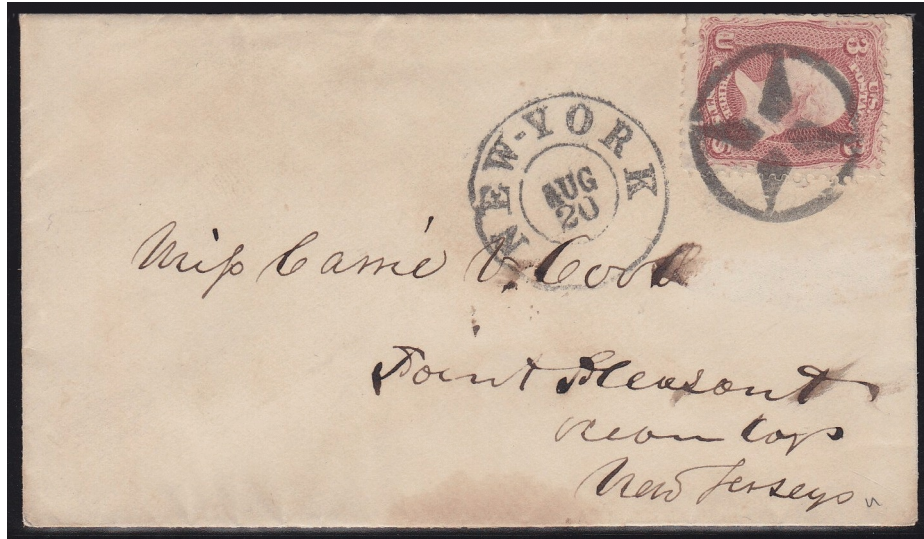 3 U 3 U.S
NEW-YORK
AUG
20
Miss Carrie V. Cook
Point Pleasant
Ocean Co
New Jersey